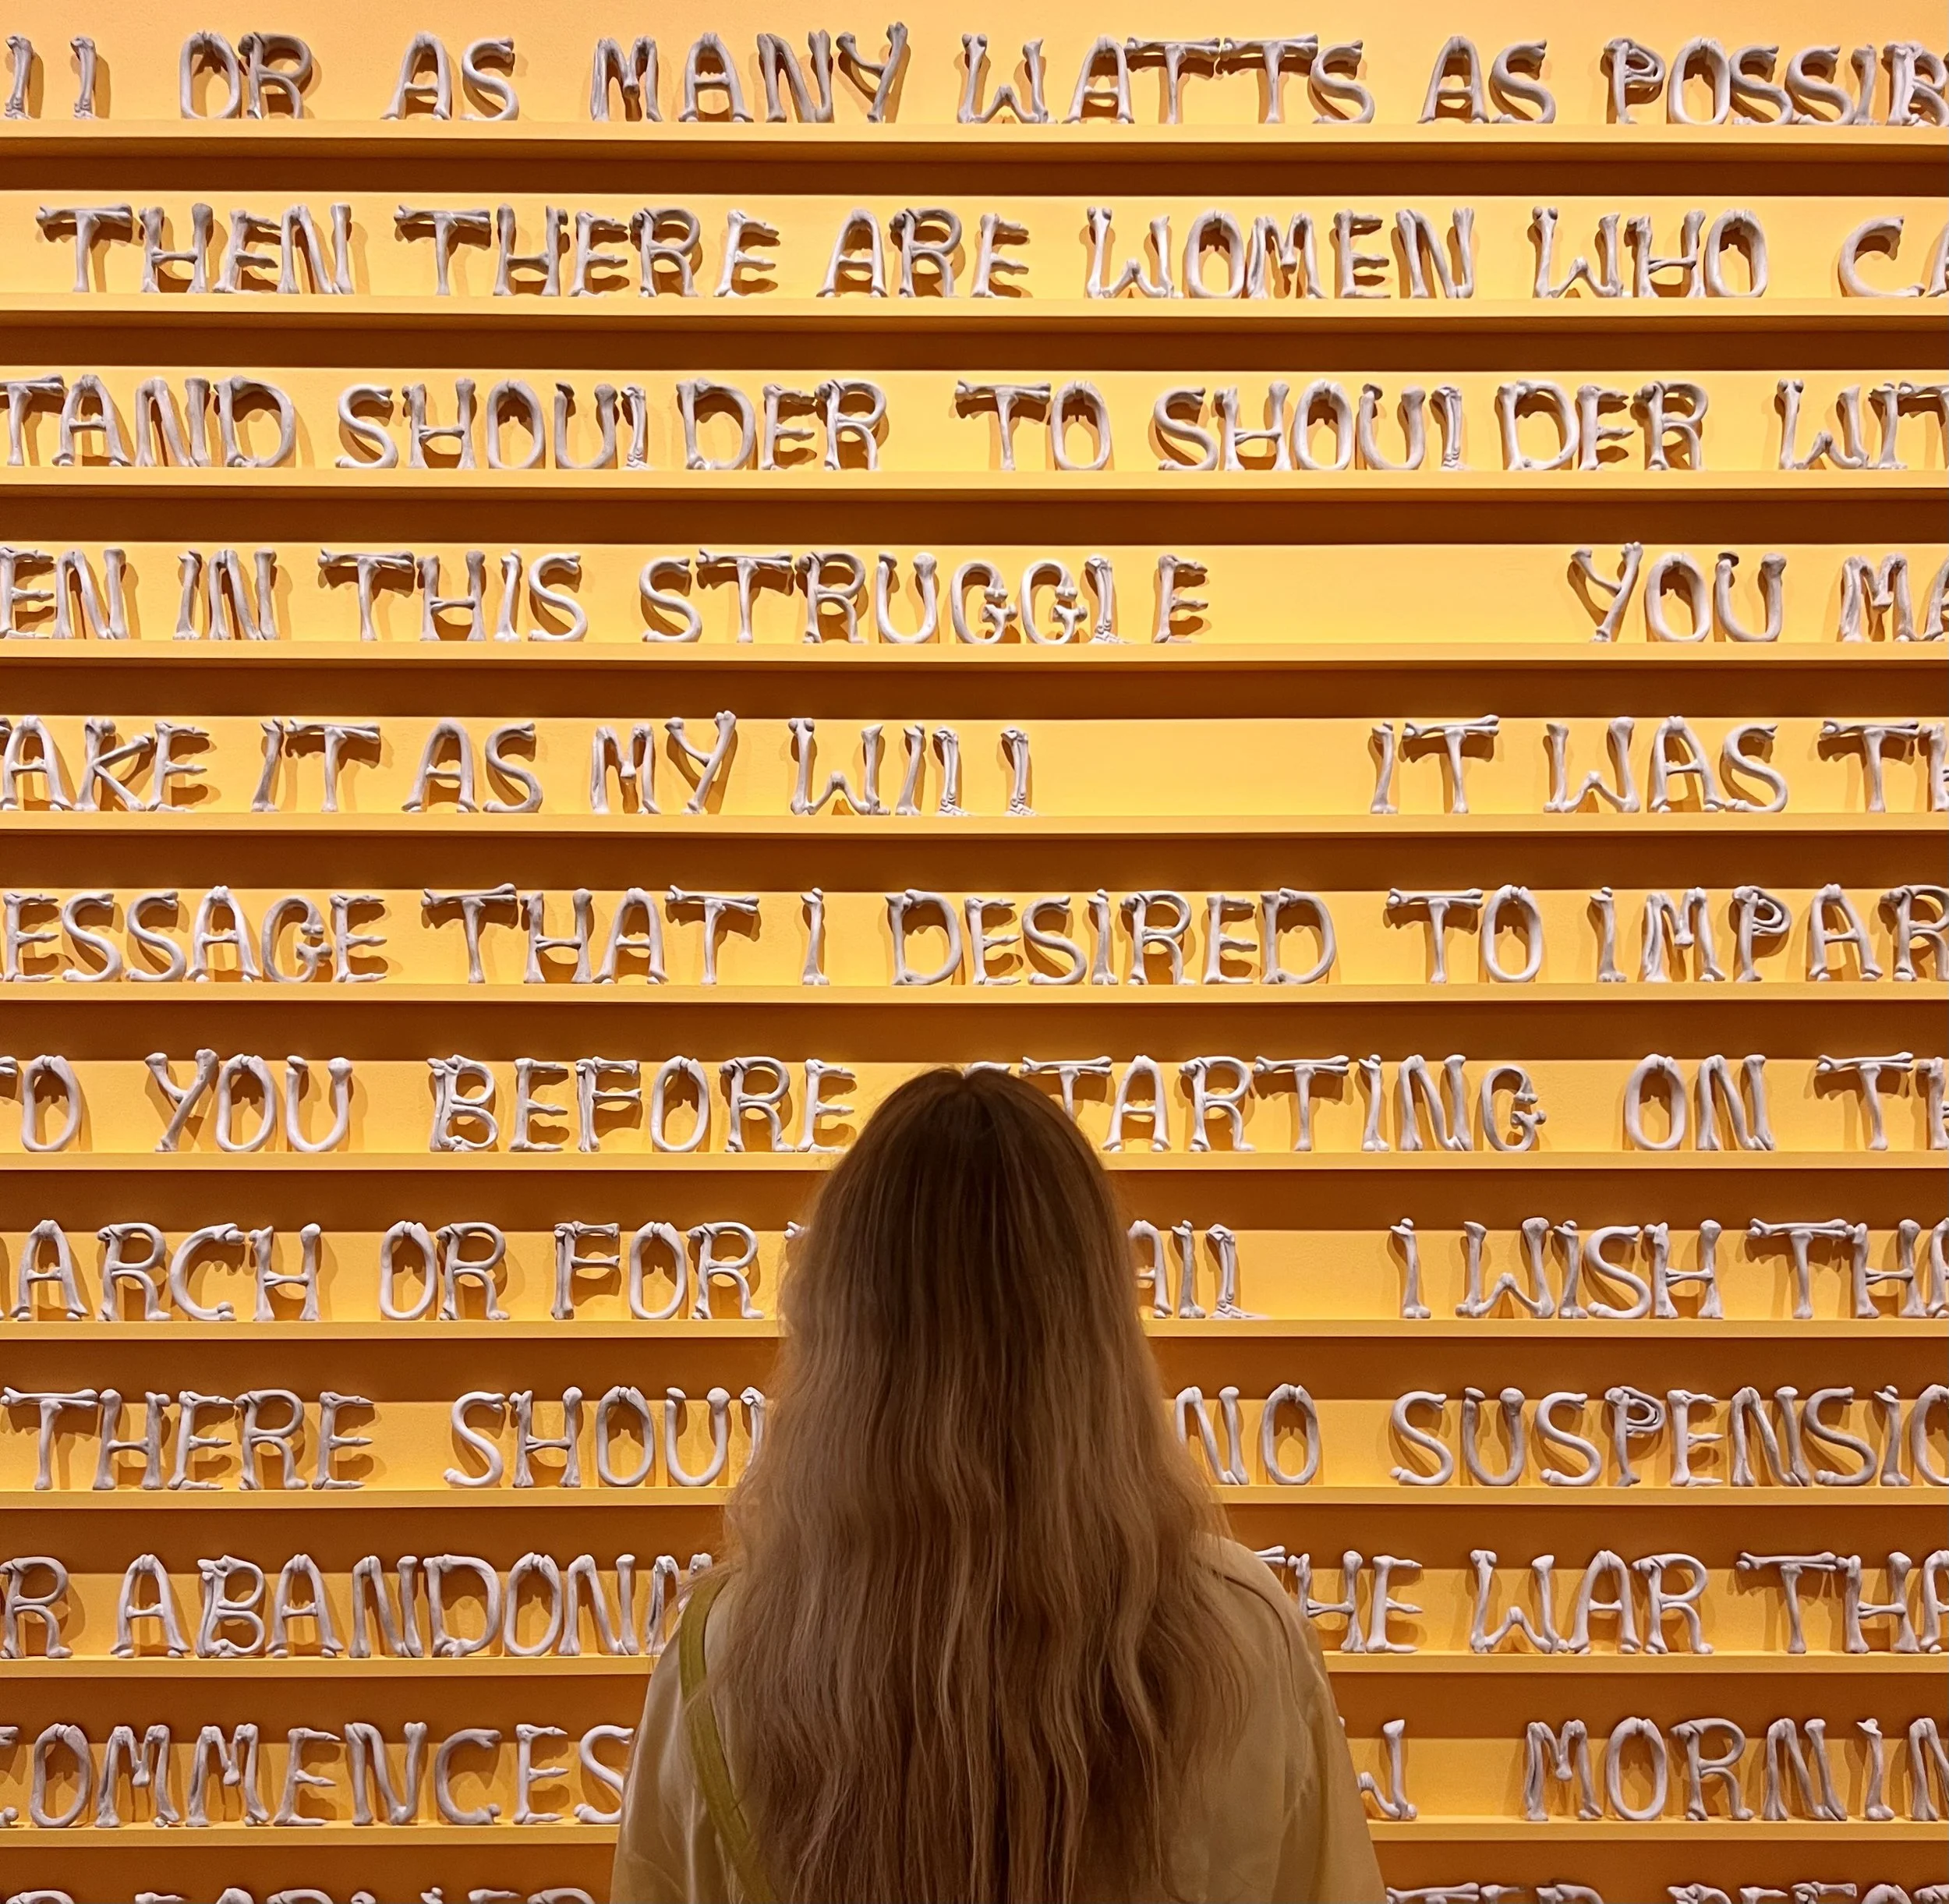 OR AS MANY WATTS AS POSSIB
THEN THERE ARE WOMEN WHO CA
TAND SHOULDER TO SHOULDER WIT
EN IN THIS STRUGGLE YOU MA
AKE IT AS MY WILL IT WAS TH
ESSAGE THAT I DESIRED TO IMPAR
O YOU BEFORE TARTING ON TH
ARCH OR FOR AIL I WISH THA
THERE SHOU NO SUSPENSIO
R ABANDONM HE WAR THA
COMMENCES MORNIN